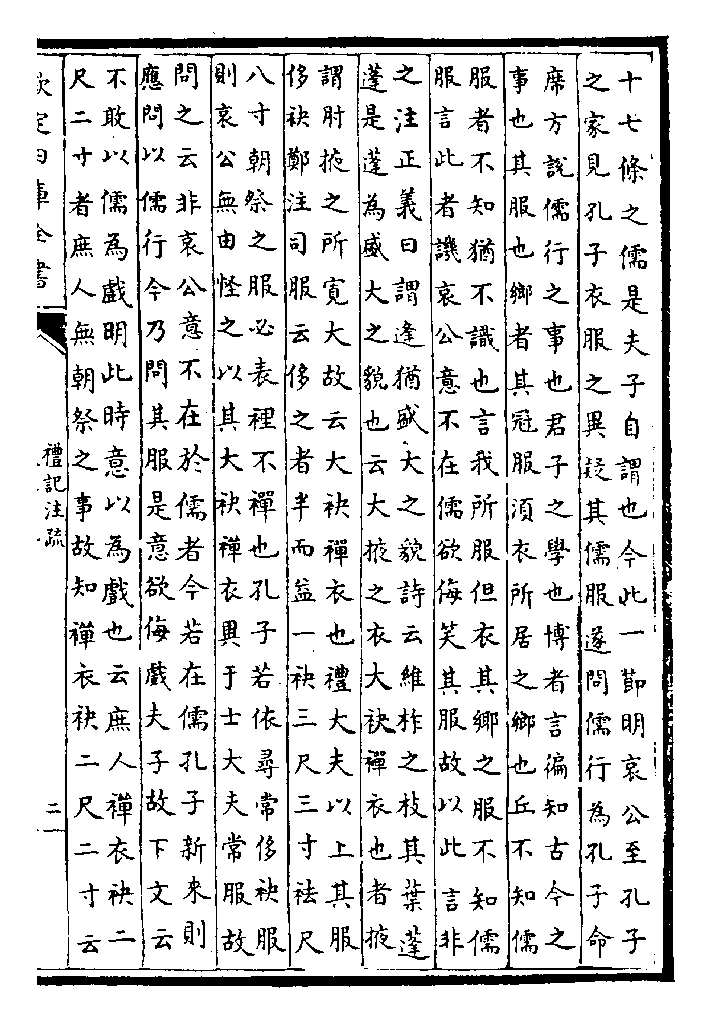 十七條之儒是夫子自謂也今此一節明哀公至孔子
之家見孔子衣服之異疑其儒服遂問儒行為孔子命
席方說儒行之事也君子之學也博者言徧知古今之
事也其服也鄉者其冠服須衣所居之鄉也丘不知儒
服者不知猶不識也言我所服但衣其鄉之服不知儒
服言此者譏哀公意不在儒欲侮笑其服故以此言非
之注正義曰謂逢猶盛大之貌詩云維柞之枝其葉蓬
蓬是蓬為盛大之貌也云大掖之衣大袂襌衣也者掖
謂肘掖之所寛大故云大袂襌衣也禮大夫以上其服
侈袂鄭注司服云侈之者半而益一袂三尺三寸袪尺
八寸朝祭之服必表裡不襌也孔子若依尋常侈袂服
則哀公無由怪之以其大袂襌衣異于士大夫常服故
問之云非哀公意不在於儒者今若在儒孔子新來則
應問以儒行今乃問其服是意欲侮戲夫子故下文云
不敢以儒為戲明此時意以為戲也云庶人襌衣袂二
尺二寸者庶人無朝祭之事故知襌衣袂二尺二寸云
欽定四庫全書
禮記注疏
二